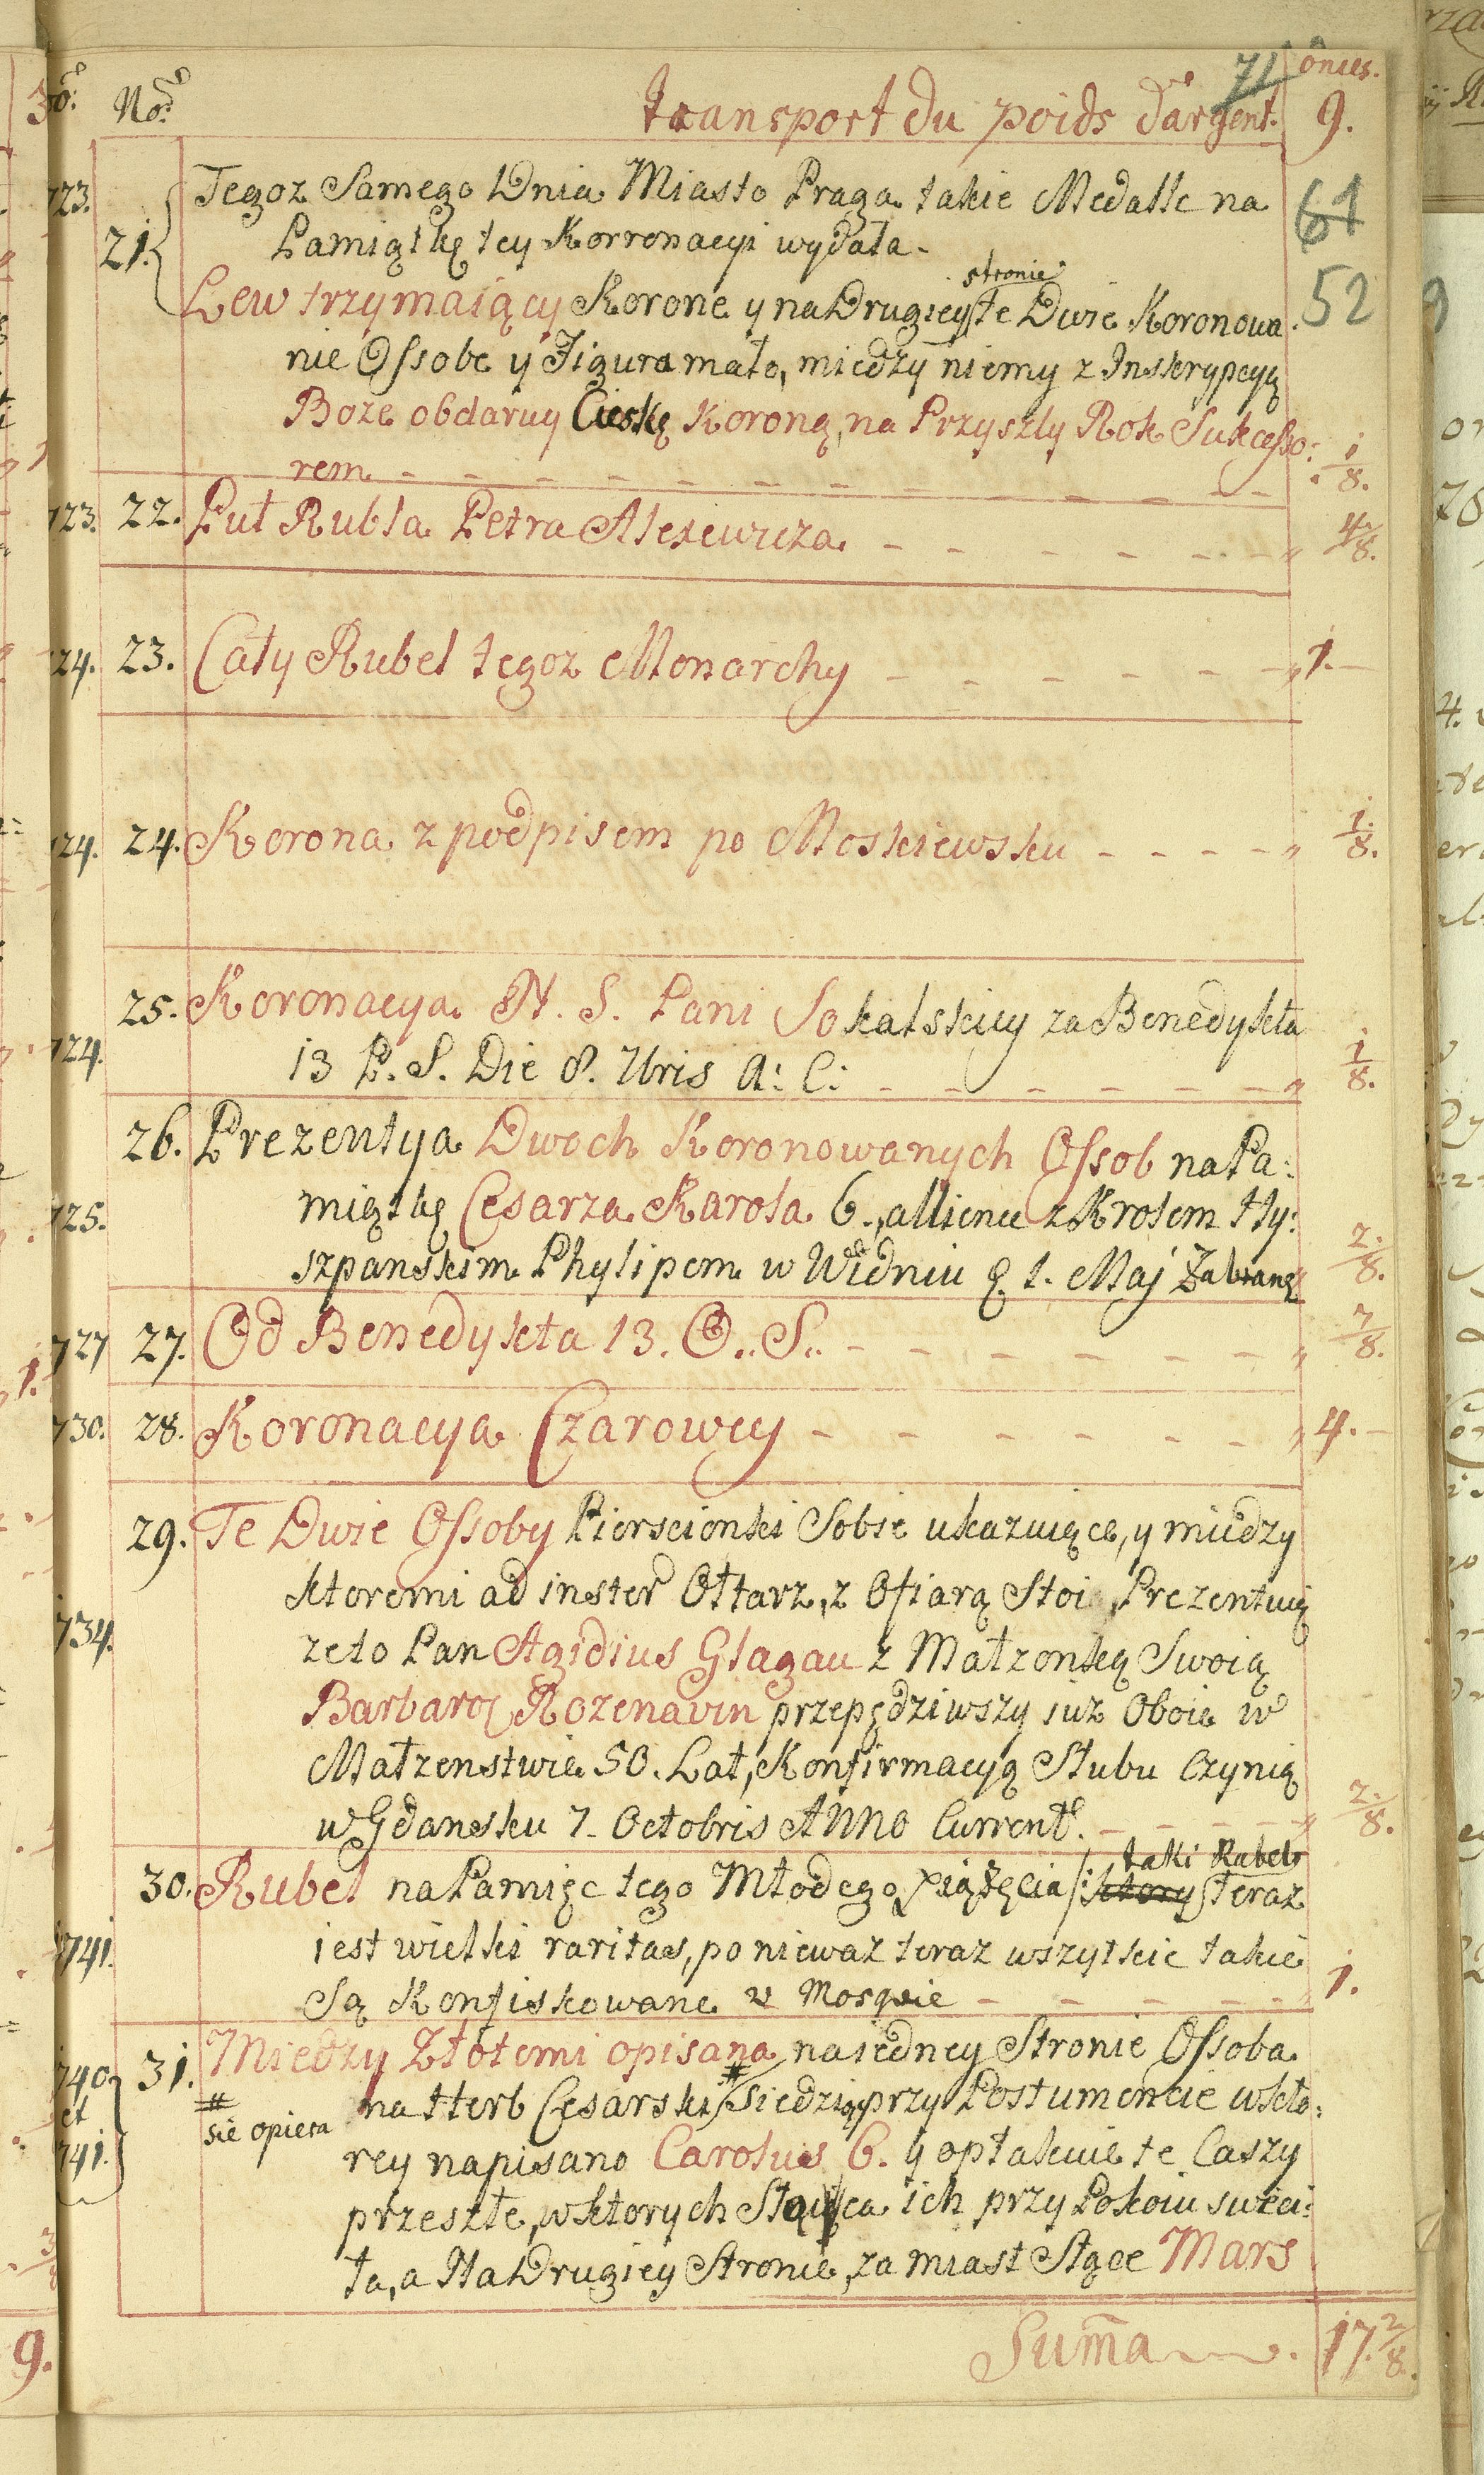 71
Onces.
No.
transport du poids d'argent.
9.
723.
21.
Tegoz Samego Dnia Miasto Praga takie Medalle na
Pamiątkę tey Korronacyi wydała -
64
52
stronie
Lew trzymaiący Korone y na Drugiey te Dwie Koronowa
nie Ossobe y Figura mało, między niemy z Inskrypcyą
Boze obdaruy Cieską Koroną, na Przyszly Rok Sukcesso:
rem
1/8.
723. 22. Puł Rubla Petra Alexiewicza. 4/8.
724. 23. Cały Rubel tegoz Monarchy 1.
724. 24. Korona z podpisem po Moskiewsku 1/8.
25. Koronacya N. S. Pani Sokalskiey za Benedykta
724.
13 P. S. Die 8. 7bris A: C: 1/8.
26. Prezentya Dwoch Koronowanych Ossob na Pa:
725.
miątkę Cesarza Karola 6., allience z Krolem Hy:
szpanskim Phylipem w Widniu 1. Maj Zabraną
2/8.
727 27. Od Benedykta 13. O. S. 7/8.
730. 28. Koronacya Czarowey 4.
29. Te Dwie Ossoby Pierscionki Sobie ukazuięce, y miedzy
ktoremi ad inster Ołtarz, z Ofiarą Stoi, Prezentuią
734.
zeto Pan Agidius Glagau z Małzonką Swoią
Barbarą Rozenavin przepędziwszy iuz Oboie w
Małzenstwie 50. Lat, Konfirmacyą Slubu Czynią
w Gdansku 7. Octobris Anno Current. 2/8.
taki Rubel
30. Rubel na Pamięc tego Młodego Xiążęcia /: ktory teraz
741.
iest wielki raritas, poniewaz teraz wszytkie takie
Są Konfiskowane w Mosqvie 1.
740.
et
741.
31. Miedzy Złotemi opisana na iedney Stronie Ossoba
# się opiera
na Herb Cesarski # Siedziąc przy Postumencie w kto:
rey napisano Carolus 6. y opłakuie te Czaszy
przeszłe, w ktorych Słonca ich przy Pokoiu swieci:
ła, a Na Drugiey Stronie, za miast Stące Mars
Suma 17. 2/8.
9.